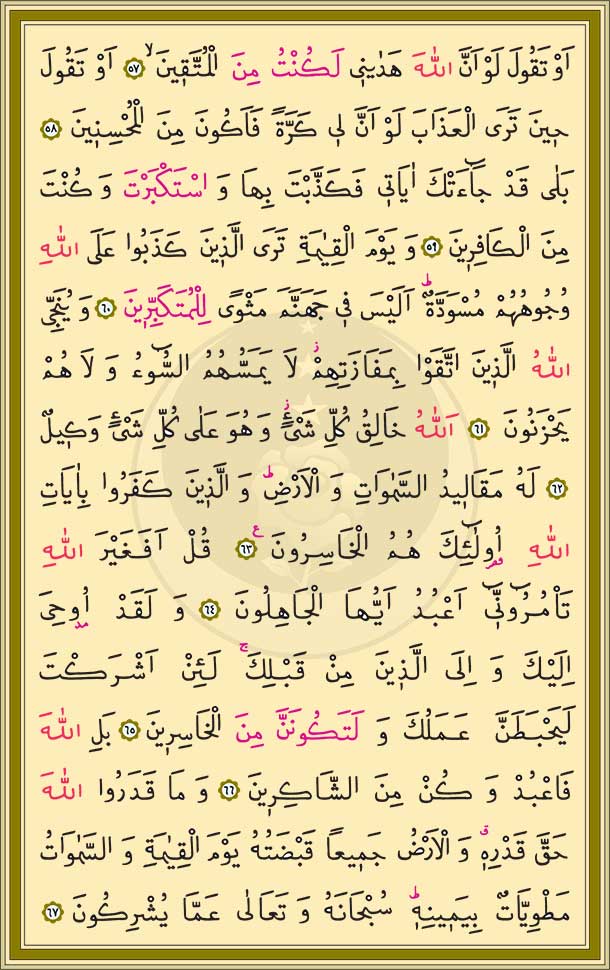 اَوْ تَقُولَ لَوْ اَنَّ اللّٰهَ هَدٰينٖي لَكُنْتُ مِنَ الْمُتَّقٖينَۙ ﴿٥٧﴾ اَوْ تَقُولَ
حٖينَ تَرَى الْعَذَابَ لَوْ اَنَّ لٖي كَرَّةً فَاَكُونَ مِنَ الْمُحْسِنٖينَ ﴿٥٨﴾
بَلٰى قَدْ جَٓاءَتْكَ اٰيَاتٖي فَكَذَّبْتَ بِهَا وَ اسْتَكْبَرْتَ وَ كُنْتَ
مِنَ الْكَافِرٖينَ ﴿٥٩﴾ وَ يَوْمَ الْقِيٰمَةِ تَرَى الَّذٖينَ كَذَبُوا عَلَى اللّٰهِ
وُجُوهُهُمْ مُسْوَدَّةٌؕ اَلَيْسَ فٖي جَهَنَّمَ مَثْوًى لِلْمُتَكَبِّرٖينَ ﴿٦٠﴾ وَ يُنَجِّي
اللّٰهُ الَّذٖينَ اتَّقَوْا بِمَفَازَتِهِمْؗ لَا يَمَسُّهُمُ السُّٓوءُ وَ لَا هُمْ
يَحْزَنُونَ ﴿٦١﴾ اَللّٰهُ خَالِقُ كُلِّ شَيْءٍؗ وَ هُوَ عَلٰى كُلِّ شَيْءٍ وَكٖيلٌ
﴿٦٢﴾ لَهُ مَقَالٖيدُ السَّمٰوَاتِ وَ الْاَرْضِؕ وَ الَّذٖينَ كَفَرُوا بِاٰيَاتِ
اللّٰهِ اُو۬لٰٓئِكَ هُمُ الْخَاسِرُونَ ﴿٦٣﴾ع قُلْ اَفَغَيْرَ اللّٰهِ
تَاْمُرُٓونّٖٓي اَعْبُدُ اَيُّهَا الْجَاهِلُونَ ﴿٦٤﴾ وَ لَقَدْ اُو۫حِيَ
اِلَيْكَ وَ اِلَى الَّذٖينَ مِنْ قَبْلِكَۚ لَئِنْ اَشْرَكْتَ
لَيَحْبَطَنَّ عَمَلُكَ وَ لَتَكُونَنَّ مِنَ الْخَاسِرٖينَ ﴿٦٥﴾ بَلِ اللّٰهَ
فَاعْبُدْ وَ كُنْ مِنَ الشَّاكِرٖينَ ﴿٦٦﴾ وَ مَا قَدَرُوا اللّٰهَ
حَقَّ قَدْرِهٖۗ وَ الْاَرْضُ جَمٖيعاً قَبْضَتُهُ يَوْمَ الْقِيٰمَةِ وَ السَّمٰوَاتُ
مَطْوِيَّاتٌ بِيَمٖينِهٖؕ سُبْحَانَهُ وَ تَعَالٰى عَمَّا يُشْرِكُونَ ﴿٦٧﴾